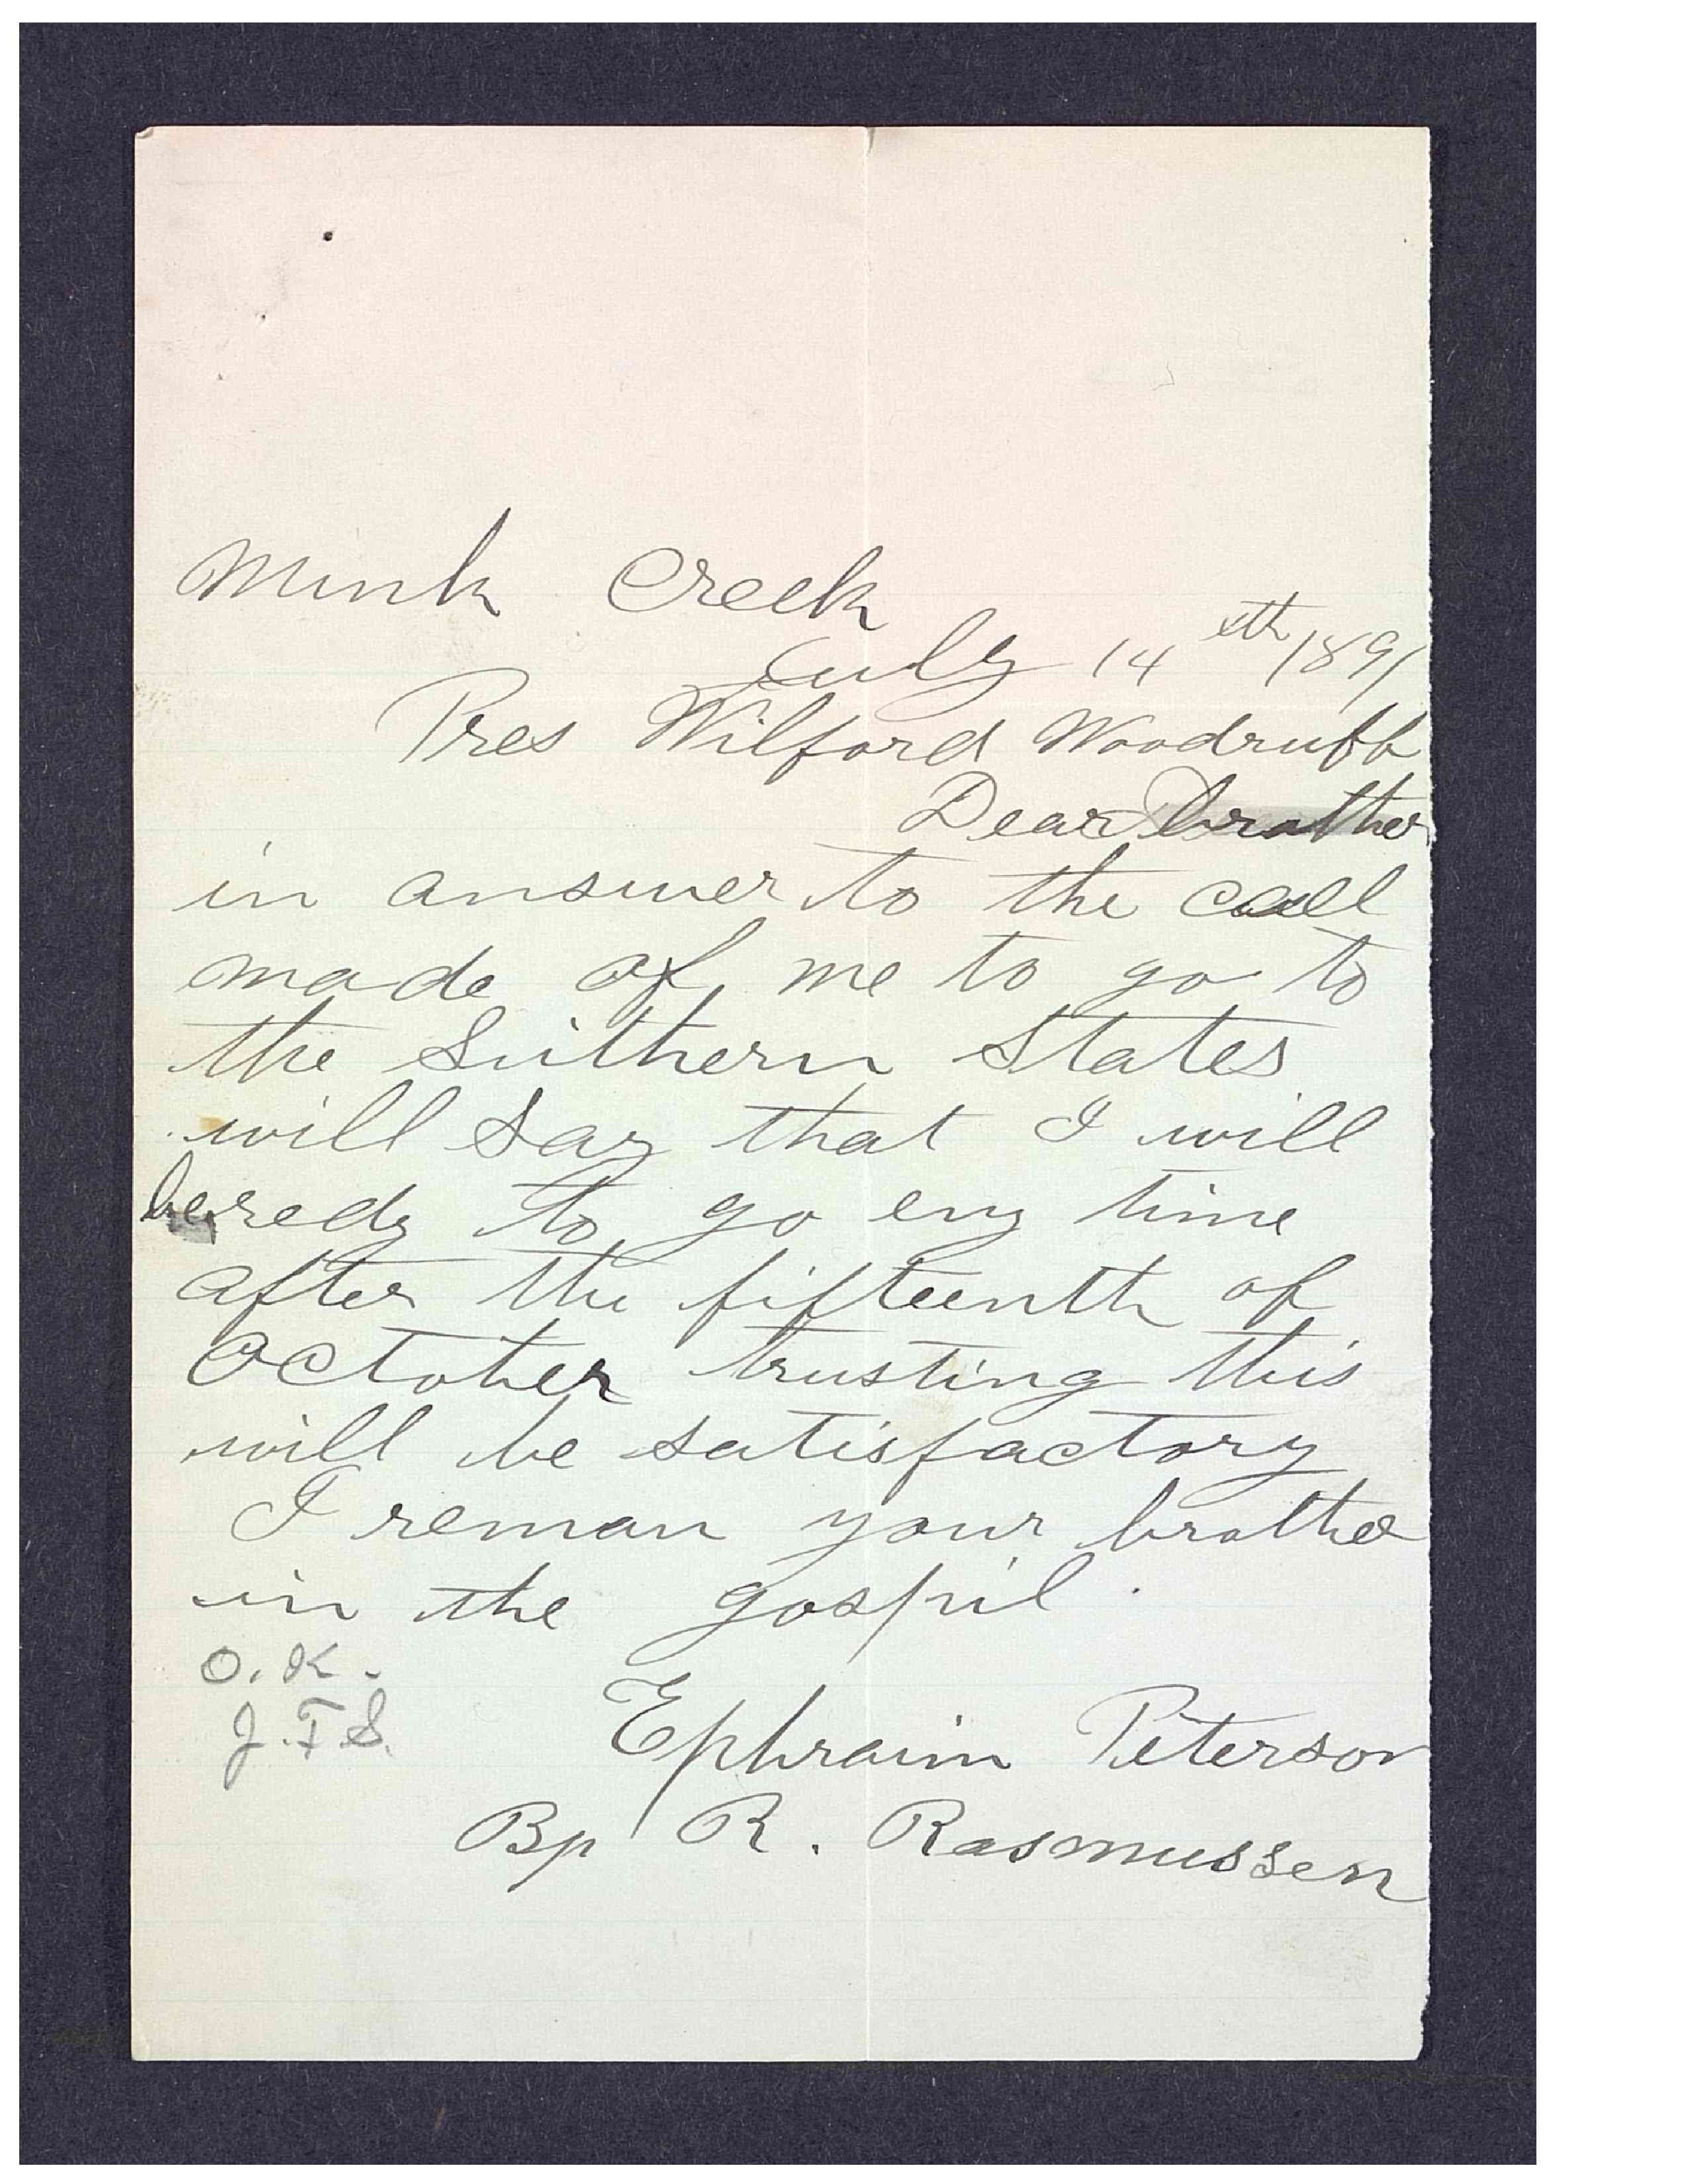 Mink Creek
July 14th 1891
Pres Wilford Woodruff
Dear brother
in answer to the call
made of me to go to
the Suthern States
will say that I will
be redy to go eny time
after the fifteenth of
October trusting this
will be satisfactory
I reman your brother
in the gospil.
O.K.
J.F.S.
Ephraim Peterson
Bp R. Rasmussen